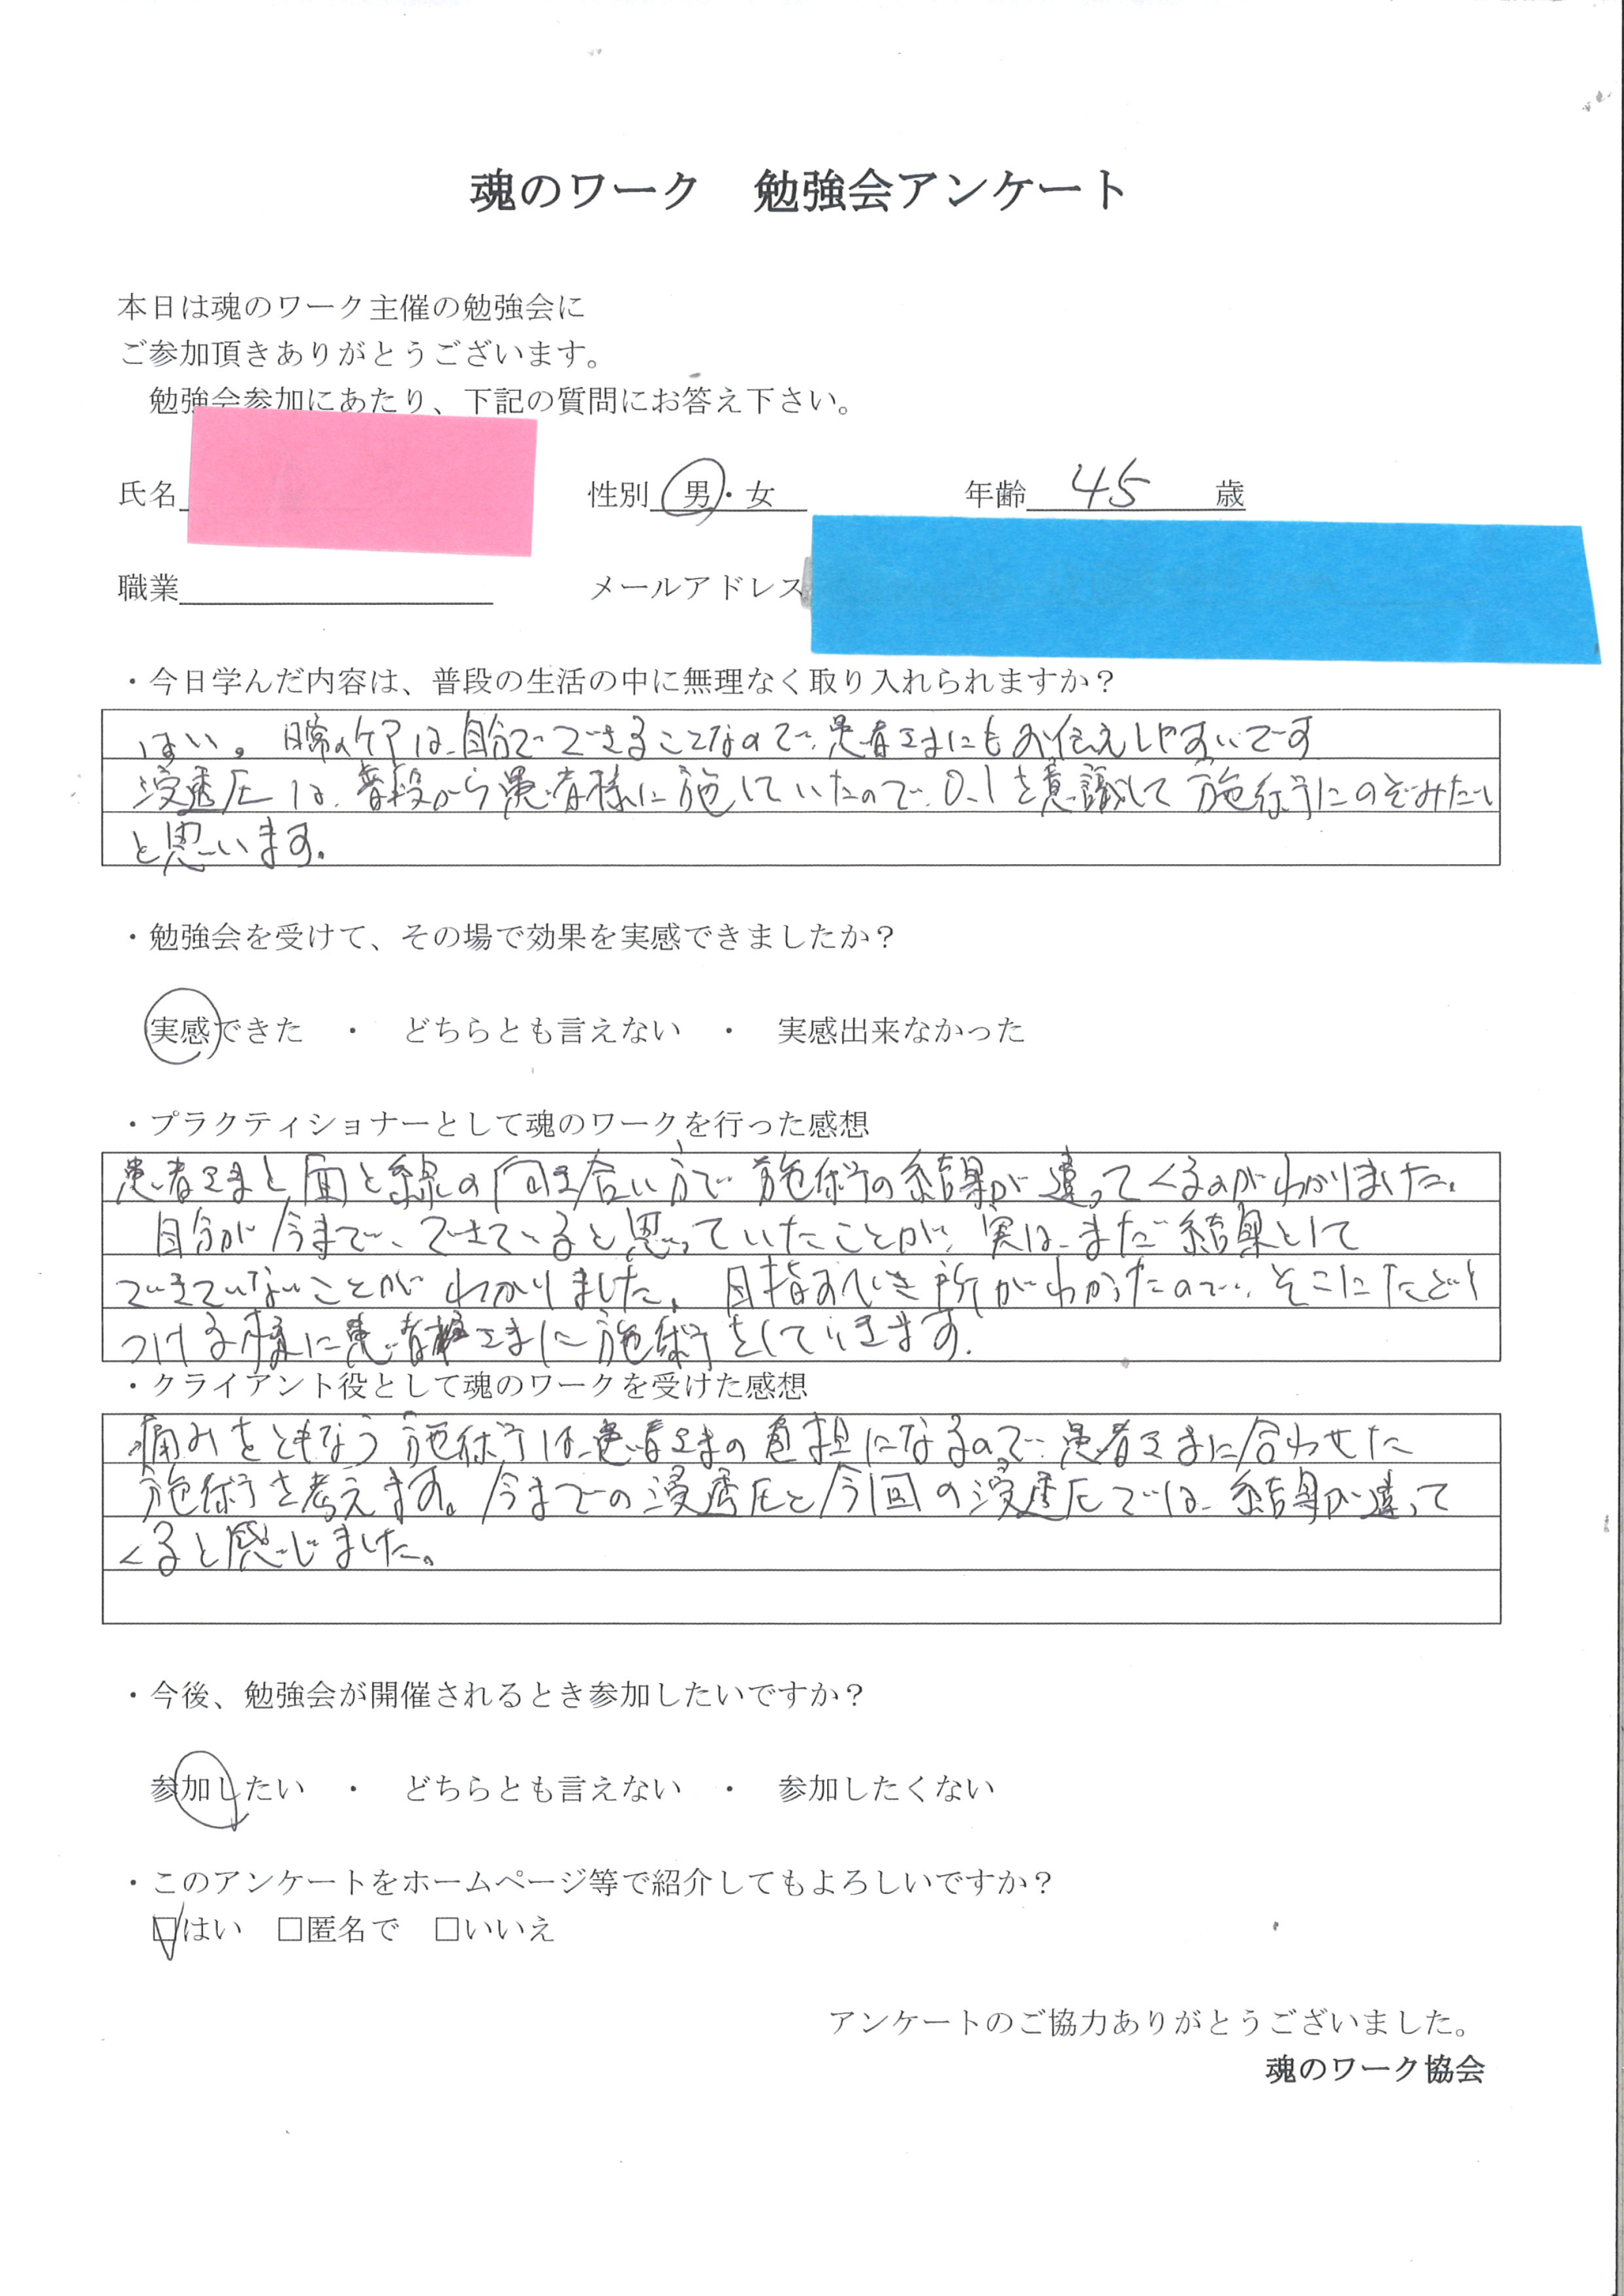 魂のワーク　勉強会アンケート
本日は魂のワーク主催の勉強会に
ご参加頂きありがとうございます。
勉強会参加にあたり、下記の質問にお答え下さい。
氏名　性別　男・女　年齢　45　歳
職業　メールアドレス
・今日学んだ内容は、普段の生活の中に無理なく取り入れられますか？
はい。日常のケアは、自分でできることなので、患者さまにもお伝えしやすいです
浸透圧は、普段から患者様に施していたので、0.1を意識して施術にのぞみたい
と思います。
・勉強会を受けて、その場で効果を実感できましたか？
実感できた　・　どちらとも言えない　・　実感出来なかった
・プラクティショナーとして魂のワークを行った感想
患者さまと面と線の向き合い方で施術の結果が違ってくるのがわかりました。
自分が今まで、できていると思っていたことが、実は、まだ結果として
できていないことがわかりました。目指すべき所がわかったので、そこにたどり
つける様に患者さまに施術をしていきます。
・クライアント役として魂のワークを受けた感想
痛みをともなう施術は、患者さまの負担になるので、患者さまに合わせた
施術を考えます。今までの浸透圧と今回の浸透圧では、結果が違って
くると感じました。
・今後、勉強会が開催されるとき参加したいですか？
参加したい　・　どちらとも言えない　・　参加したくない
・このアンケートをホームページ等で紹介してもよろしいですか？
☑はい　□匿名で　□いいえ
アンケートのご協力ありがとうございました。
魂のワーク協会